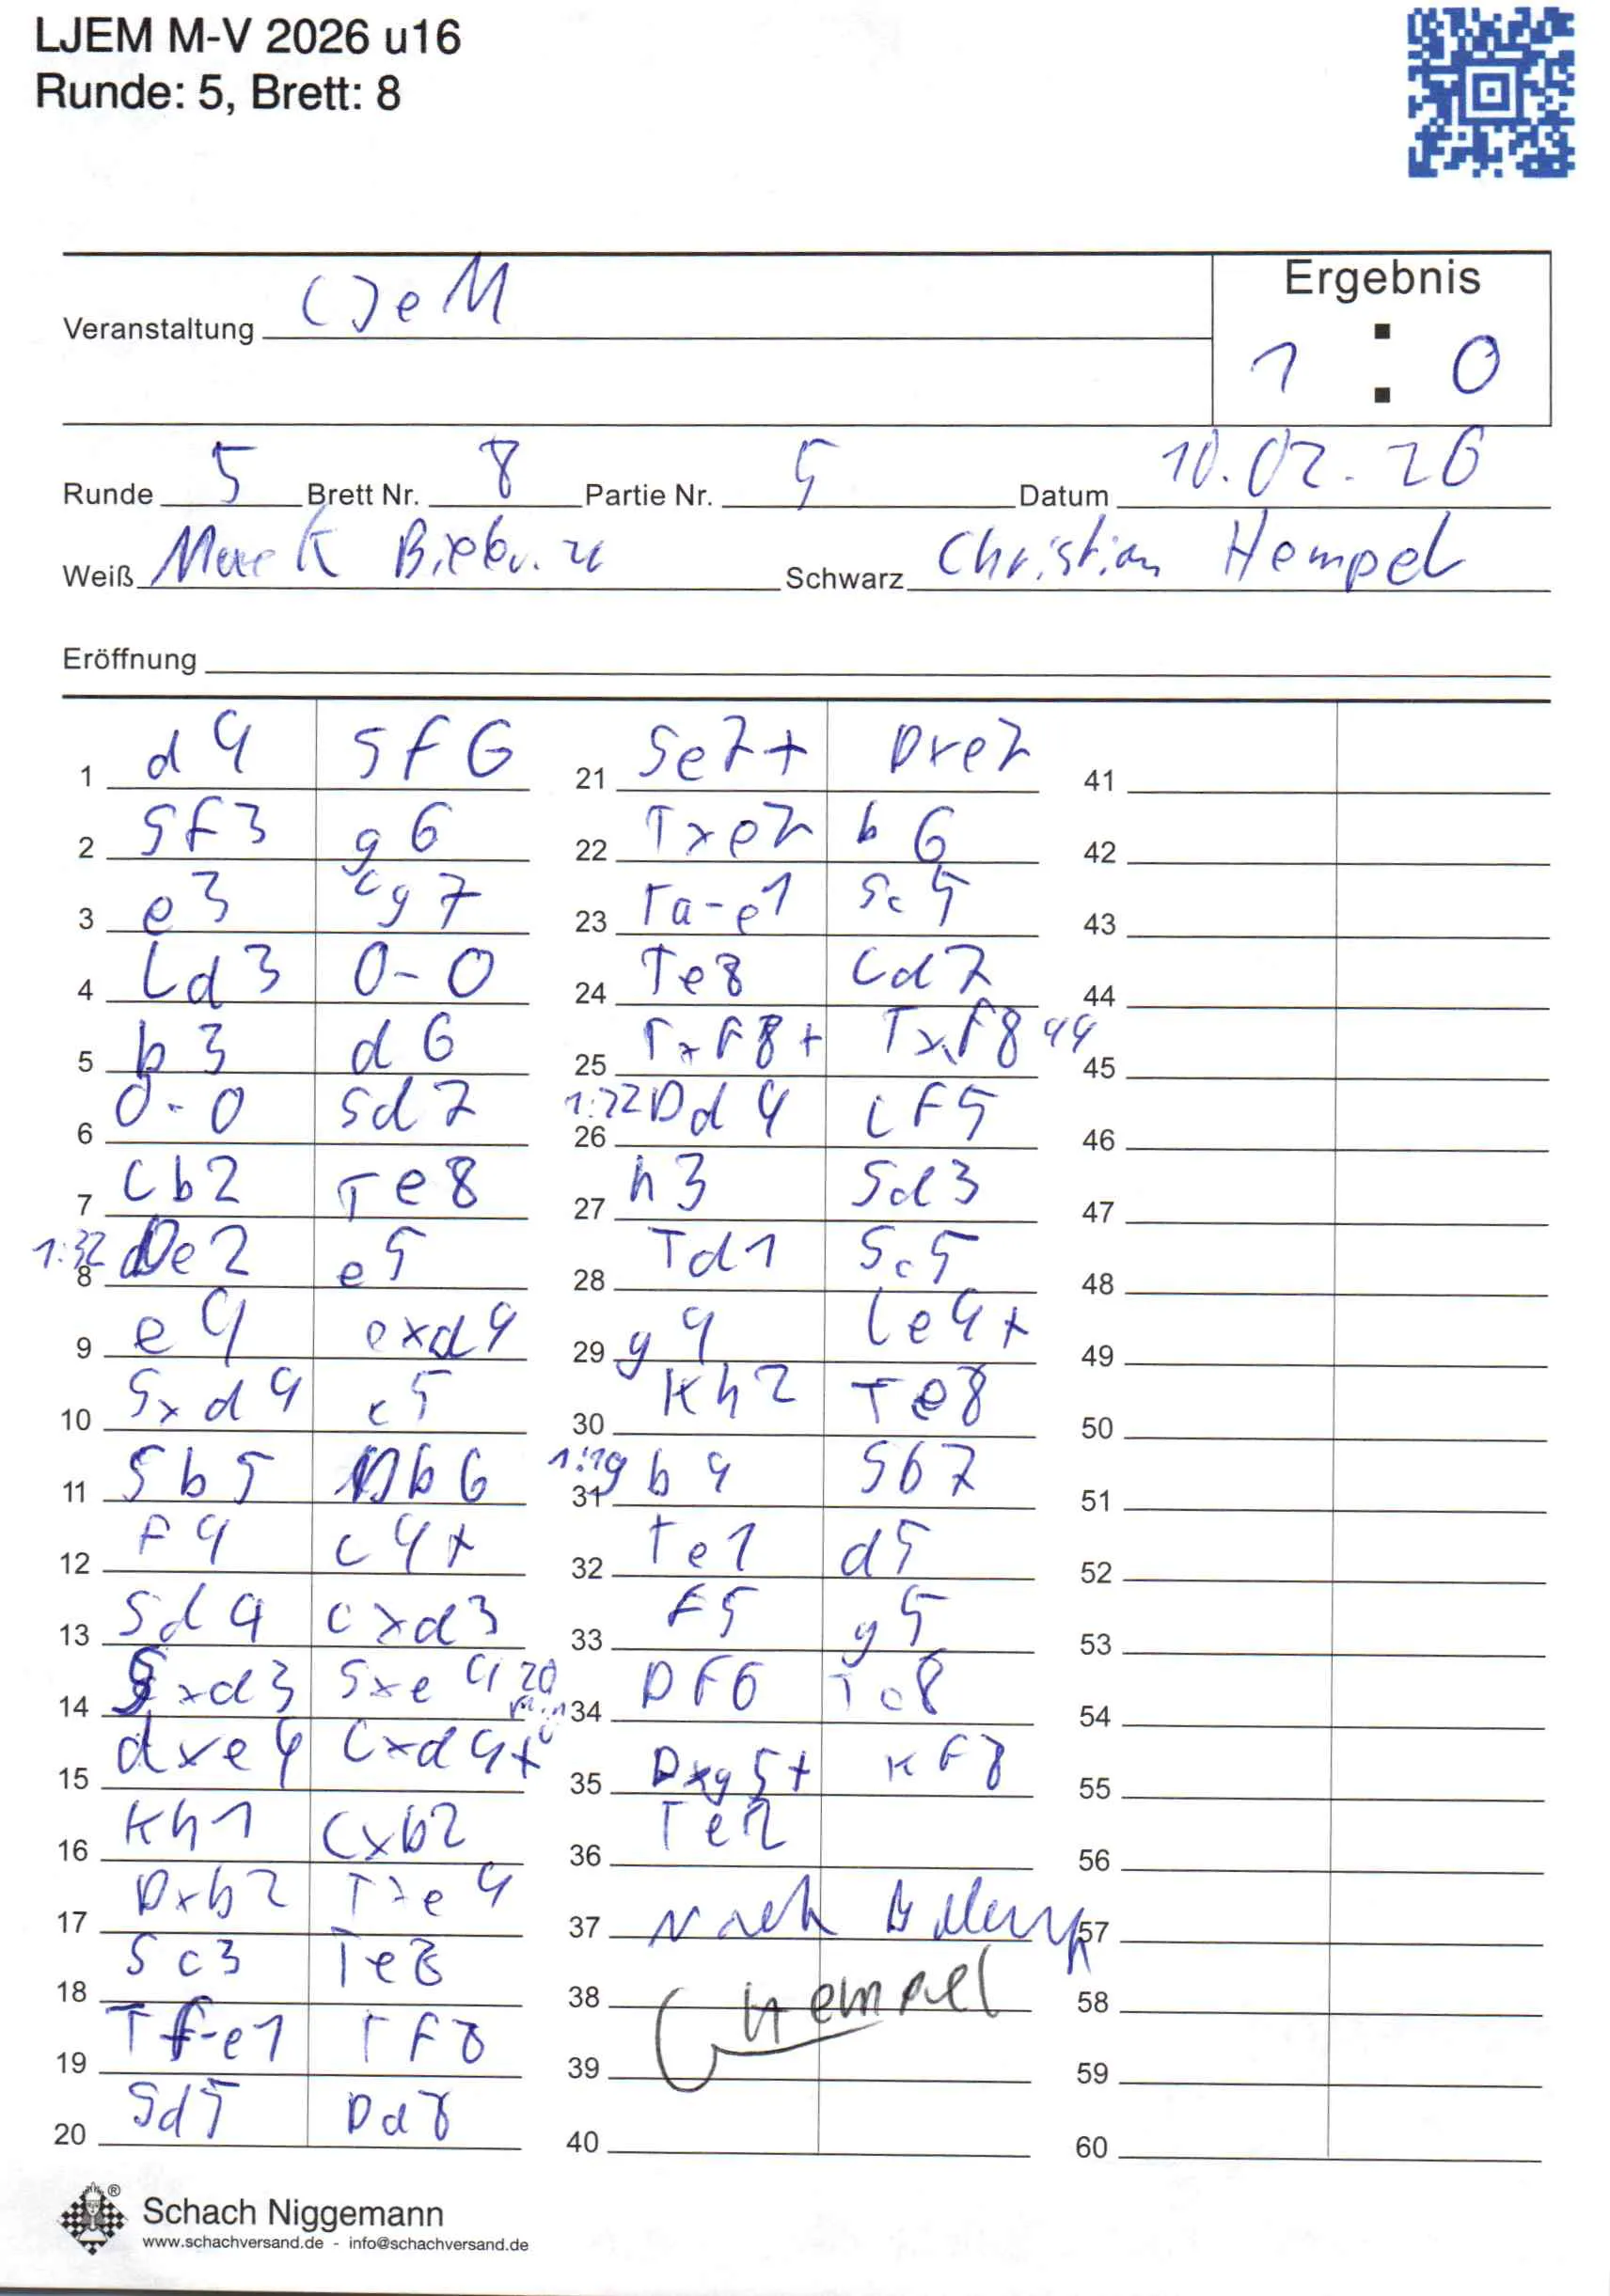 LJEM M-V 2026 u16
Runde: 5, Brett: 8
Veranstaltung LJeM
Ergebnis
1 : 0
Runde 5 Brett Nr. 8 Partie Nr. 5 Datum 10.02.26
Weiß Schwarz Christian Hempel
Eröffnung
1 d4 Sf6
2 Sf3 g6
3 e3 Lg7
4 Ld3 0-0
5 b3 d6
6 0-0 Sd7
7 Lb2 Te8
1:32
8 De2 e5
9 e4 exd4
10 Sxd4 c5
11 Sb5 Db6
12 F4 c4+
13 Sd4 cxd3
14 Sxd3 Sxe4 20 min
15 dxe4 Lxd4+
16 Kh1 Lxb2
17 Dxb2 Txe4
18 Sc3 Te8
19 Tf-e1 TF8
20 Sd5 Dd8
21 Se7+ Dxe7
22 Txe7 b6
23 Ta-e1 Sc5
24 Te8 Ld7
25 TxF8+ TxF8 44
1:22
26 Dd4 LF5
27 h3 Sd3
28 Td1 Sc5
29 g4 Le4+
30 Kh2 Te8
1:19
31 b4 Sb7
32 Te1 d5
33 F5 g5
34 DF6 Tc8
35 Dxg5+ KF8
36 Te2
37 Nach
38 Hempel
39
40
41
42
43
44
45
46
47
48
49
50
51
52
53
54
55
56
57
58
59
60
Schach Niggemann
www.schachversand.de - info@schachversand.de